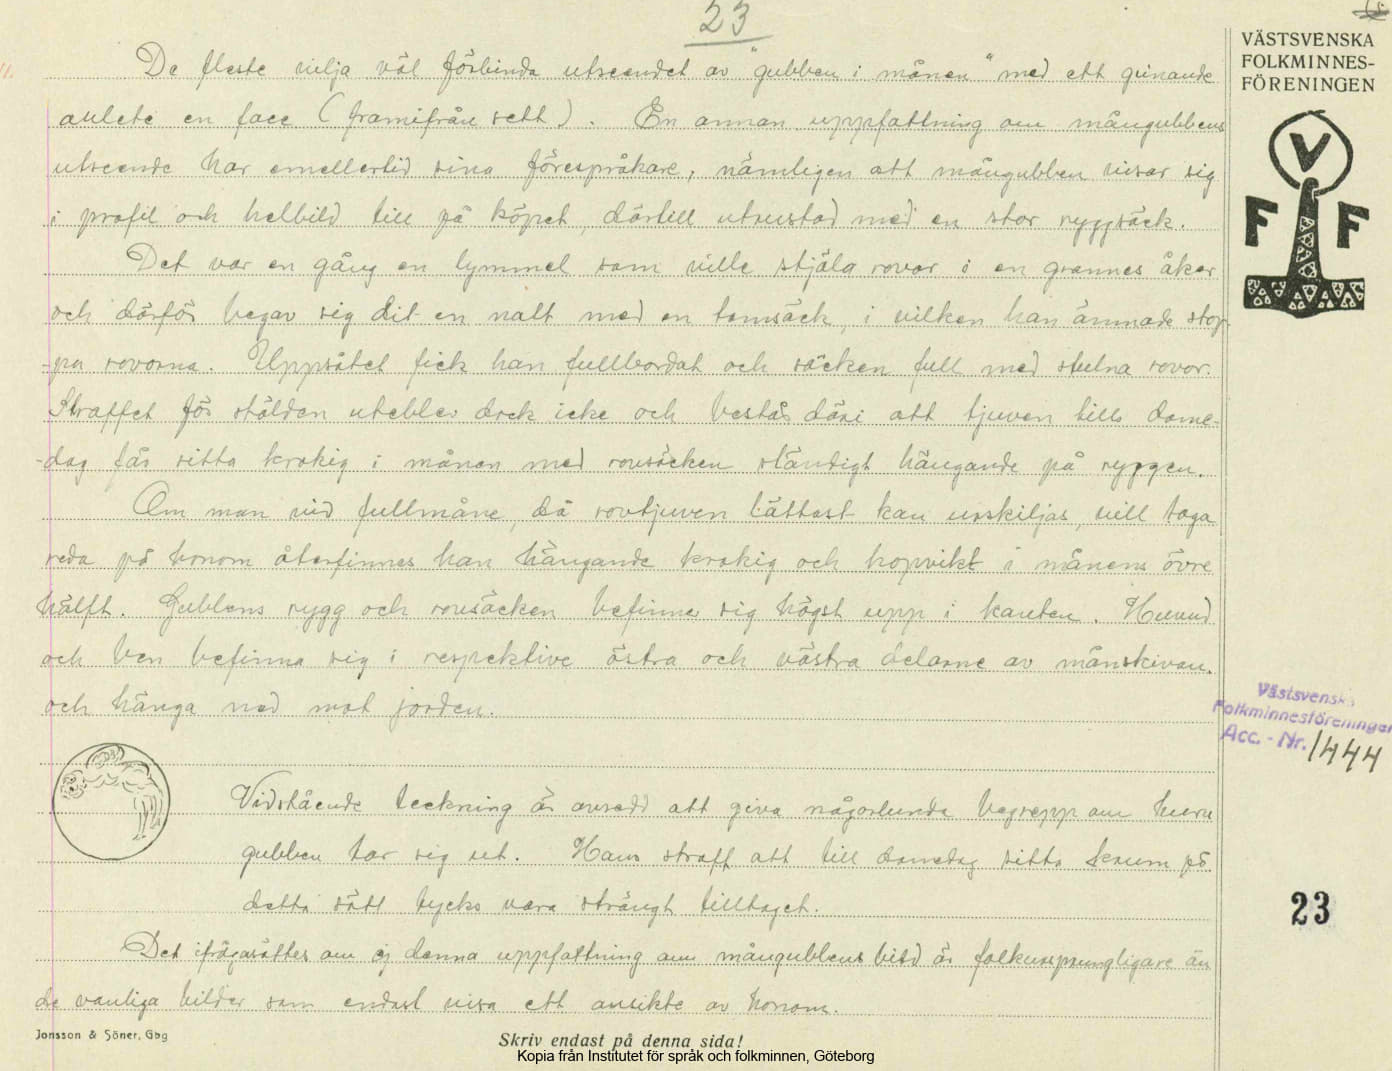 23
De fleste vilja väl förbinda utseendet av "gubben i månen" med ett grinande
anlete en face (framifrån sett). En annan uppfattning om mångubbens
utseende har emellertid sina förespråkare, nämligen att mångubben visar sig
i profil och helbild till på köpet, därtill utrustad med en stor ryggsäck.
Det var en gång en lymmel som ville stjäla rovor i en grannes åker
och därför begav sig dit en natt med en tomsäck, i vilken han ämnade stop-
-pa rovorna. Uppsåtet fick han fullbordat och säcken full med stulna rovor.
Straffet för stölden uteblev dock icke och består däri att tjuven tills dome-
-dag får sitta krokig i månen med rovsäcken ständigt hängande på ryggen.
Om man vid fullmåne, då rovtjuven lättast kan urskiljas, vill taga
reda på honom återfinnes han hängande krokig och hopvikt i månens övre
hälft. Gubbens rygg och rovsäcken befinner sig högst upp i kanten. Huvud
och ben befinna sig i respektive östra och västra delarne av månskivan.
och hänga ned mot jorden.
Vidstående teckning är avsedd att giva någorlunda begrepp om huru
gubben tar sig ut. Hans straff att till domedag sitta krum på
detta sätt tycks vara strängt tilltaget.
Det ifrågasättes om ej denna uppfattning om mångubbens bild är folkursprungligare än
de vanliga bilder som endast visa ett ansikte av honom.
Jonsson & Söner, Gbg
Skriv endast på denna sida!
Kopia från Institutet för språk och folkminnen, Göteborg
VÄSTSVENSKA
FOLKMINNES-
FÖRENINGEN
V
F F
Västsvenska
Folkminnesföreningen
Acc. - Nr. 1444
23